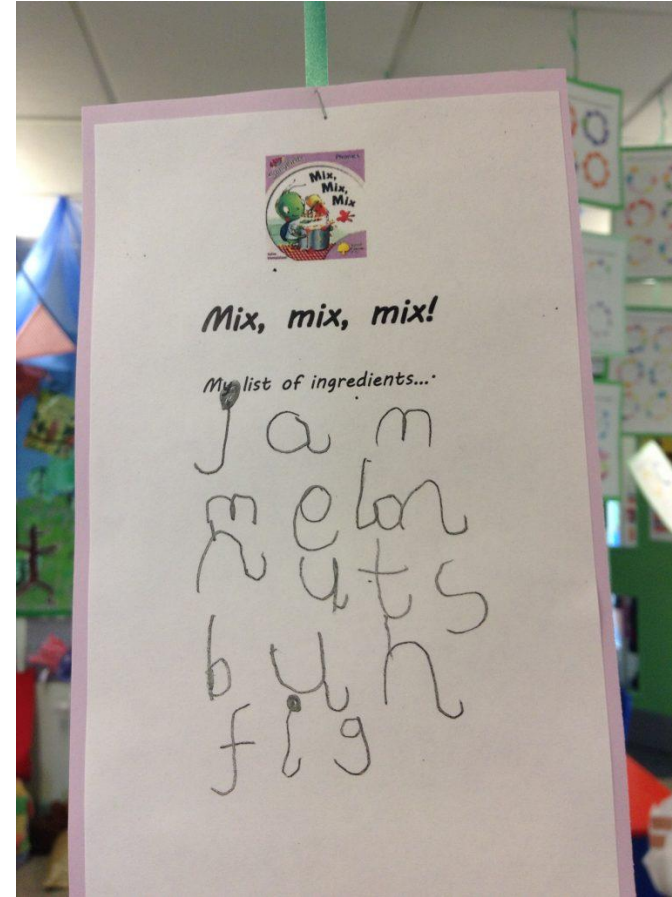 Phonics
Mix,
Mix,
Mix
Mix, mix, mix!
My list of ingredients...
jam
melon
nuts
bun
fig